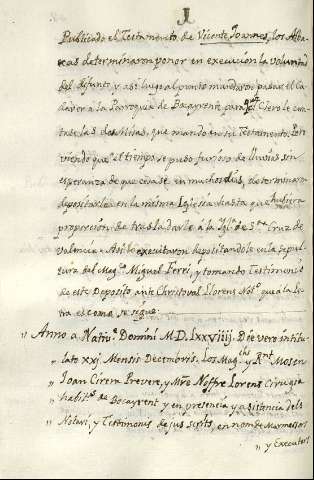 1
Publicado el Testamento de Vicente Joannes, los Alba-
ceas determinaron poner en execución la voluntad
del difunto, y así luego al punto mandaron pasar el Ca-
daver a la Parroquia de Bocayrente para q el Clero le can-
tase las de Missas, que mando en su Testamento. Pero
viendo que el tiempo se puso furioso de lluvias sin
esperanza de que cesase en muchos dias, determinaron
depositarle en la misma Iglesia hasta que hubiera
proporcion de trasladarle á la Igla. de Sta. Cruz de
Valencia. Asi lo executaron depositandole en la sepul-
tura del Magco. Miguel Ferri, y tomando testimonio
de este Deposito ante Christoval Llorens Noto. que á la le-
tra es como se sigue.
„ Anno a Nativte. Domini M.D.Lxxviiij. Die vero intitu-
„ lato xxj. Mensis Decembris. Los Magchs y Rnt Mosen
„ Joan Cirera Prevere, y Mre Nofre Lorens Cirugia
„ habits. de Bocayrent y en presencia y asistencia dels
„ Notari, y Testimonis de jus scrits, en nom de Marmessors
„ y Executors